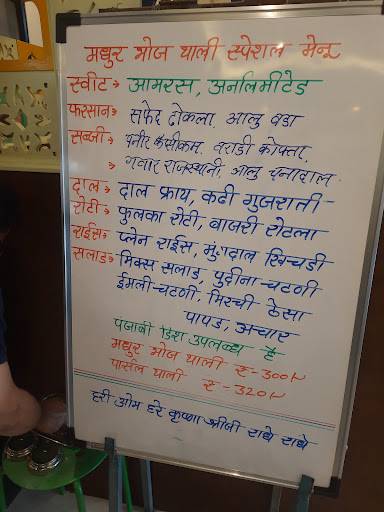 मधुर भोज थाली स्पेशल मेनू
स्वीट → आमरस, अनलिमीटेड
फरसान → सफेद ढोकला, आलु वडा
सब्जी → पनीर कॅप्सीकम, वराडी कोफ्ता,
→ गवार राजस्थानी, आलु चनादाल.
दाल → दाल फ्राय, कढी गुजराती
रोटी → फुलका रोटी, बाजरी रोटला
राईस → प्लेन राईस, मुंगदाल खिचडी
सलाड → मिक्स सलाड, पुदीना चटणी
ईमली-चटणी, मिरची ठेसा
पापड, अचार
पंजाबी डिश उपलब्ध है
मधुर भोज थाली रु - 300/-
पार्सल थाली रु - 320/-
हरी ओम हरे कृष्णा श्रीजी राधे राधे